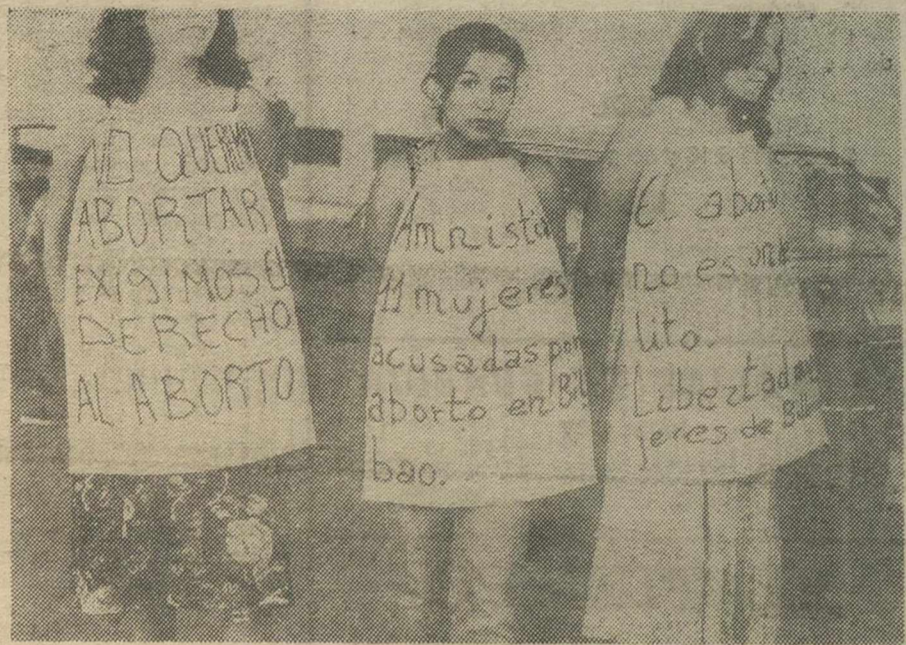 NO QUEREMO
ABORTAR
EXIGIMOS EL
DERECHO
AL ABORTO
Amnistía
11 mujeres
acusadas por
aborto en Bil
bao.
El abor
no es un
lito.
Libertad
jeres de Bil